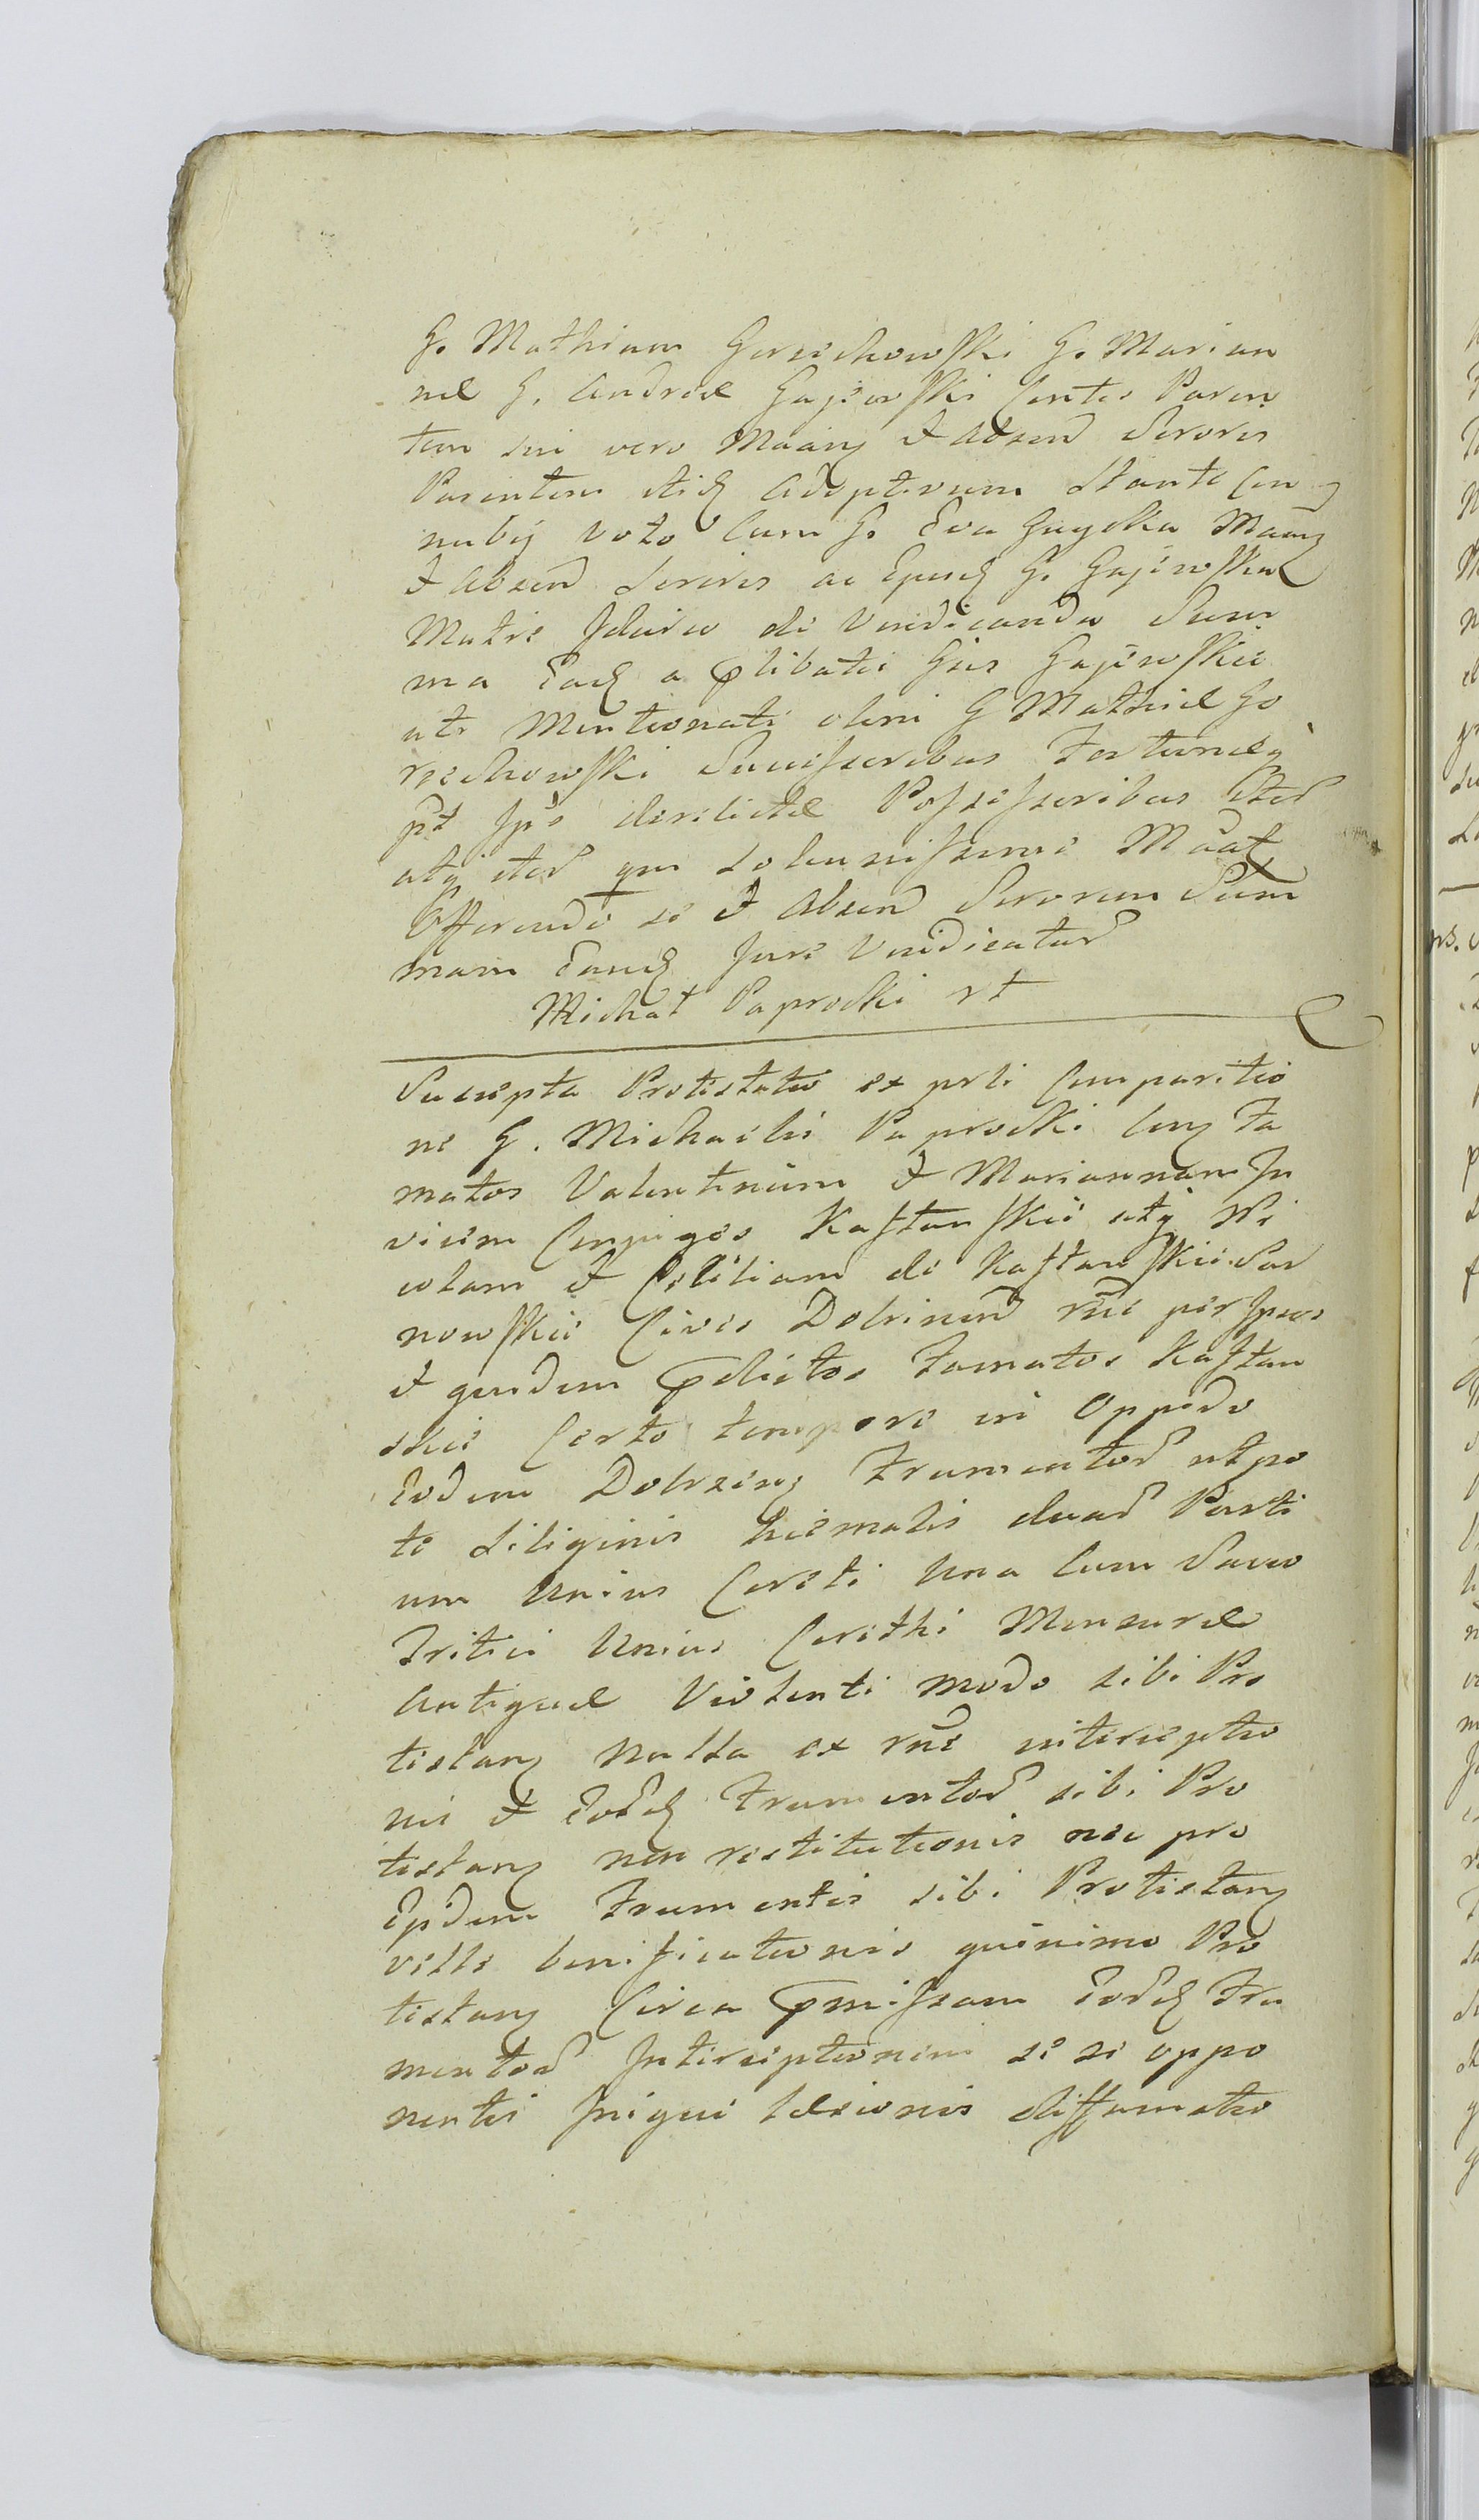 G. Mathiam Gorzechowski G. Marian
nae G. Andreae Gajewski Contis Paren
tem sui vero Maantis et Absend Sororis
Parentem itid Adoptivum Stante Con
nubij voto Cum G. Eva Gaycka Maantis
et Absend Sororis ac Ejusd G. Gajewska
Matre Idcirco de Vindicanda Sum
ma Ead a plibatis Gsis Gajewskie
uti Mentionati olim G Mathiae Go
rzechowski Successoribus Fortunaeq
pt Ips derelictae Possessoribus Iter
atq iter qm Solennissime Maat
Offerendo se et Absend Sororem Sum
mam Eand Jure Vindicatur
Michał Paprocki rt
Suscepta Protestatio ex prti Comparitio
ne G. Michaelis Paprocki Cong Fa
matos Valentinum et Mariannam In
vicem Conjuges Kasztanskie atq Ni
colam et Ceciliam de Kasztanskie Sar
nowskie Cives Dobrinen rne per Ipsos
et quidem pdictos Famatos Kasztan
skie Certo tempore in Oppido
Eodem Dobrzin Frumentor utpo
te Siliginis hiemalis duar Parti
um Unius Coreti Una Cum Sacco
Tritici Unius Corethi Mensurae
Antiquae Violenti modo sibi Pro
testan Nulla ex rne interceptio
nis et Eord Frumentor sibi Pro
testan non restitutionis nec pro
Ejsdem Frumentis sibi Protestan
velle bonificationis quinimo Pro
testan Circa pmissam Eord Fru
mentor Interceptionem se se oppo
nentis Inique laesionis diffamatio